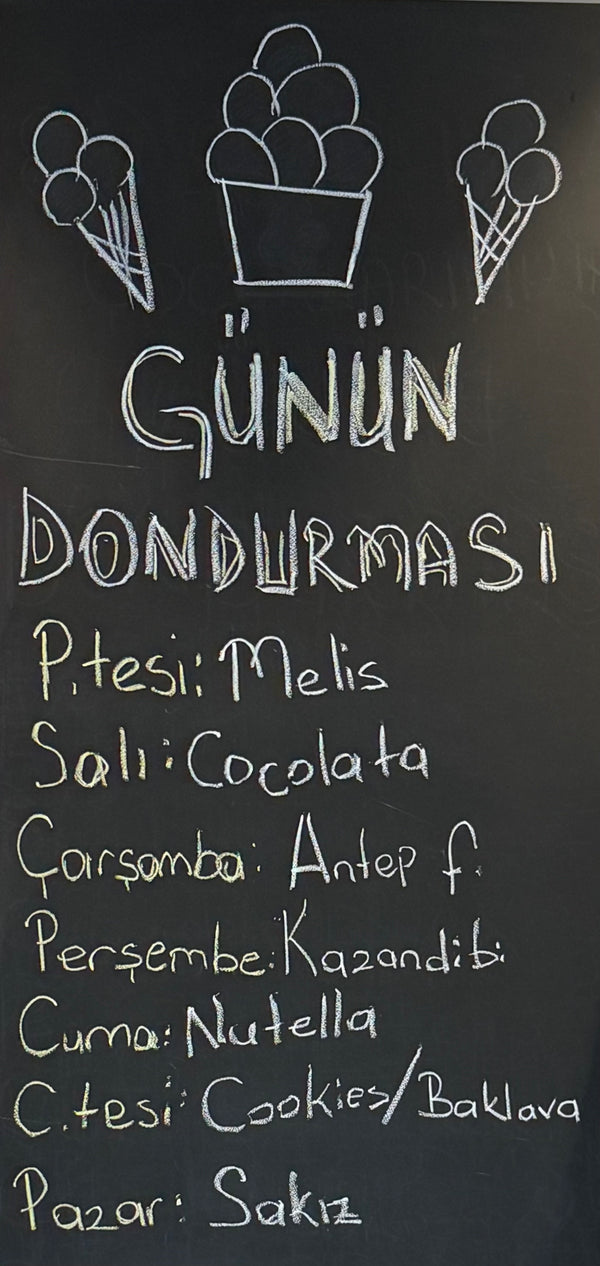 GÜNÜN
DONDURMASI
P.tesi: Melis
Salı: Cocolata
Çarşamba: Antep f.
Perşembe: Kazandibi
Cuma: Nutella
C.tesi: Cookies/Baklava
Pazar: Sakız